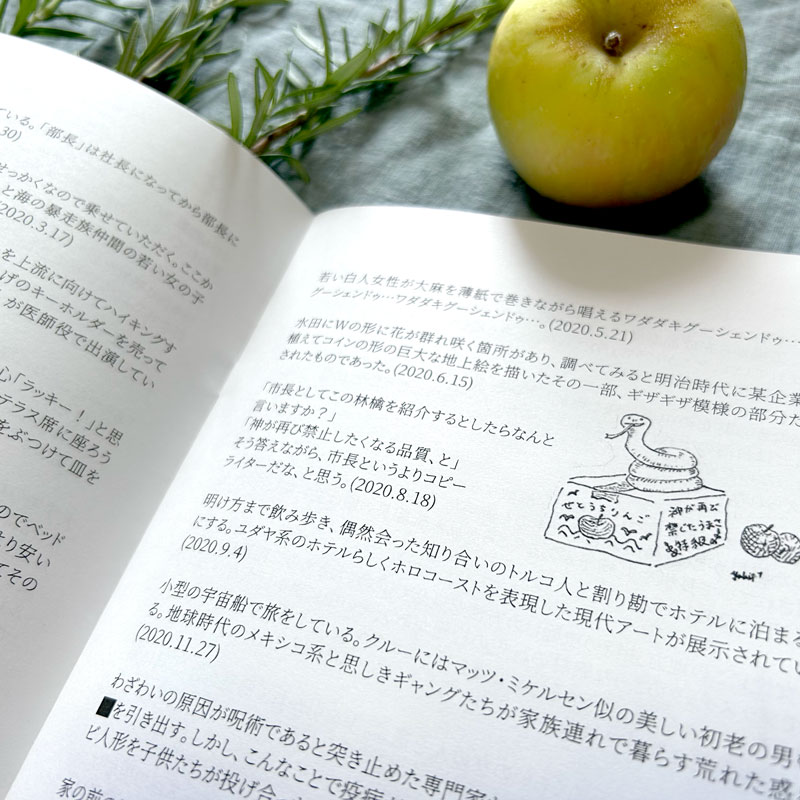 ている。「部長」は社長になってから部長に
30)
せっかくなので乗せていただく。ここか
と海の暴走族仲間の若い女の子
(2020.3.17)
を上流に向けてハイキングす
げのキーホルダーを売って
が医師役で出演してい
心「ラッキー!」と思
テラス席に座ろう
をぶつけて皿を
のでベッド
より安い
てその
若い白人女性が大麻を薄紙で巻きながら唱えるワダダキグーシェンドゥ…
グーシェンドゥ…ワダダキグーシェンドゥ…。(2020.5.21)
水田にWの形に花が群れ咲く箇所があり、調べてみると明治時代に某企業
植えてコインの形の巨大な地上絵を描いたその一部、ギザギザ模様の部分だ
されたものであった。(2020.6.15)
「市長としてこの林檎を紹介するとしたらなんと
言いますか?」
「神が再び禁止したくなる品質、と」
そう答えながら、市長というよりコピー
ライターだな、と思う。(2020.8.18)
せとうちりんご
神が再び
禁じたうまさ
特級
明け方まで飲み歩き、偶然会った知り合いのトルコ人と割り勘でホテルに泊まる
にする。ユダヤ系のホテルらしくホロコーストを表現した現代アートが展示されてい
(2020.9.4)
小型の宇宙船で旅をしている。クルーにはマッツ・ミケルセン似の美しい初老の男
る。地球時代のメキシコ系と思しきギャングたちが家族連れで暮らす荒れた惑
(2020.11.27)
わざわいの原因が呪術であると突き止めた専門家
■を引き出す。しかし、こんなことで疫病
ビ人形を子供たちが投げ合っ
家の前の